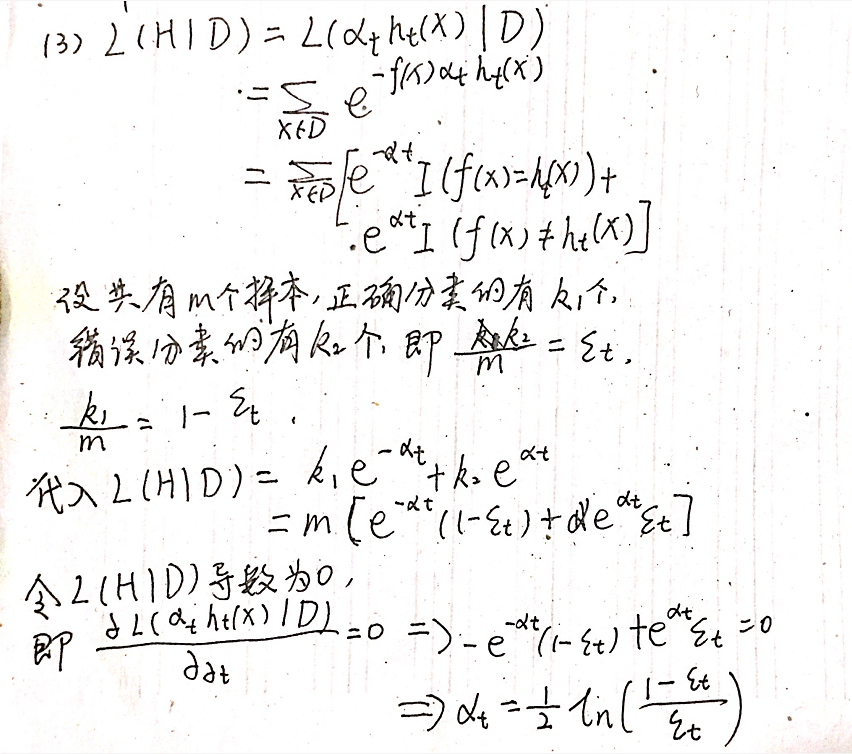 (3) L(H|D) = L(αₜhₜ(x)|D)
= ∑_{x∈D} e^{-f(x)αₜhₜ(x)}
= ∑_{x∈D} [e^{-αt} I(f(x)=hₜ(x)) +
e^{αt} I(f(x)≠hₜ(x)]
设共有m个样本,正确分类的有k₁个,
错误分类的有k₂个,即 k₂/m = εₜ,
k₁/m = 1-εₜ.
代入L(H|D) = k₁e^{-αt} + k₂e^{αt}
= m[e^{-αt}(1-εₜ)+e^{αt}εₜ]
令L(H|D)导数为0,
即 ∂L(αₜhₜ(x)|D)/∂αₜ =0 => -e^{-αt}(1-εₜ)+e^{αt}εₜ=0
=> αₜ = 1/2 ln((1-εₜ)/εₜ)